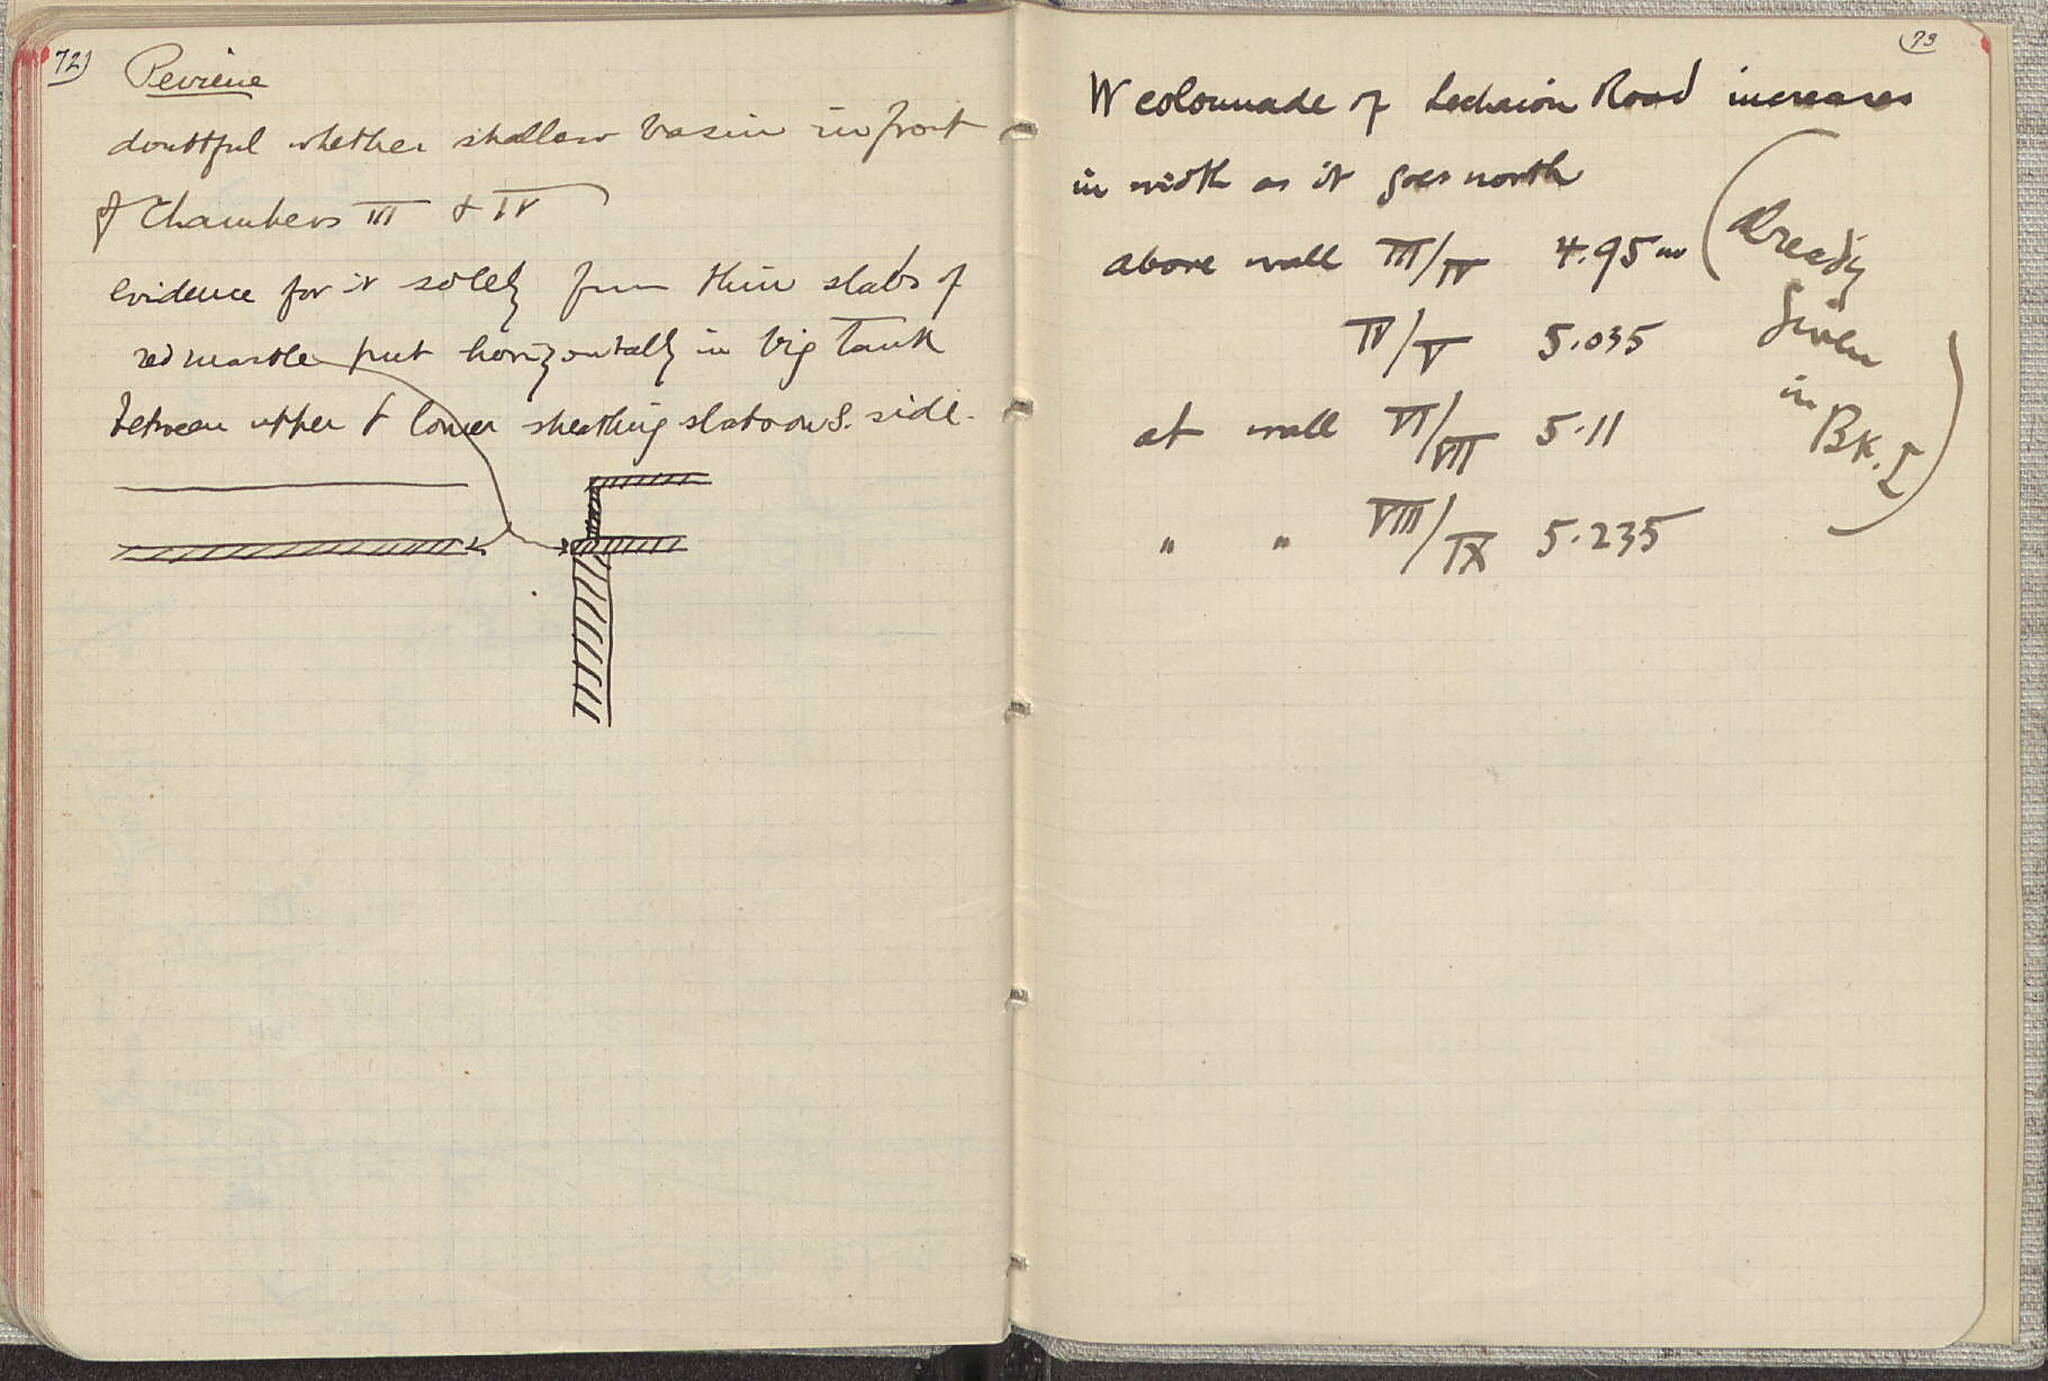 72)
Peirene
doubtful whether shallow basin in front
of Chambers III & IV
evidence for it solely from thin slabs of
red marble put horizontally in big tank
between upper & lower sheathing slabs on S. side.
73
W colonnade of Lechaion Road increases
in width as it goes north
above wall III/IV 4.95 m
IV/V 5.035
at wall VI/VII 5.11
" " VIII/IX 5.235
(Already
given
in
Bk. I)